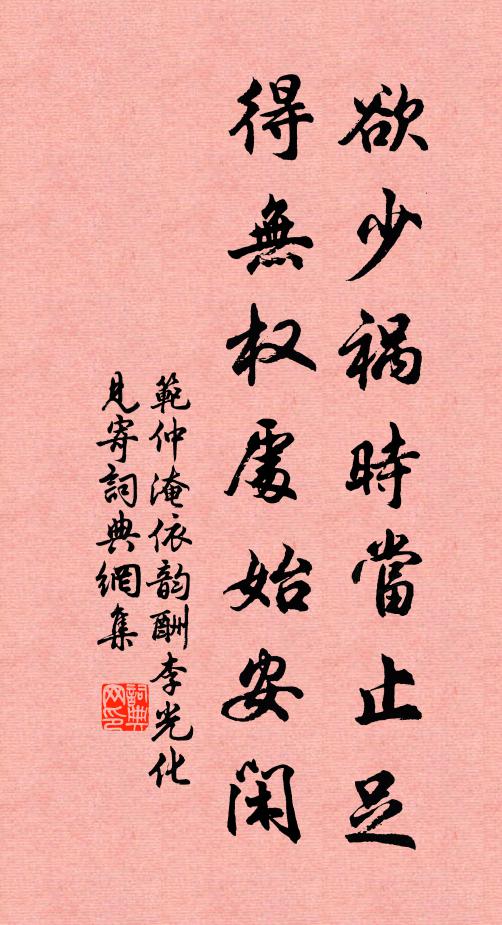 欲少祸時當止足
得無权處始安闲
範仲淹依韵酬李光化
見寄詞典網集
詞典网印